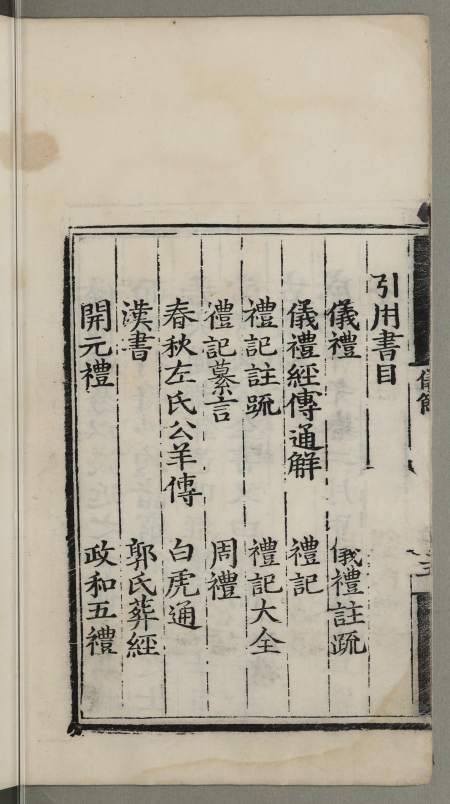 引用書目
儀禮 儀禮註䟽
儀禮經傳通解 禮記
禮記註䟽 禮記大全
禮記纂言 周禮
春秋左氏公羊傳 白虎通
漢書 郭氏葬經
開元禮 政和五禮